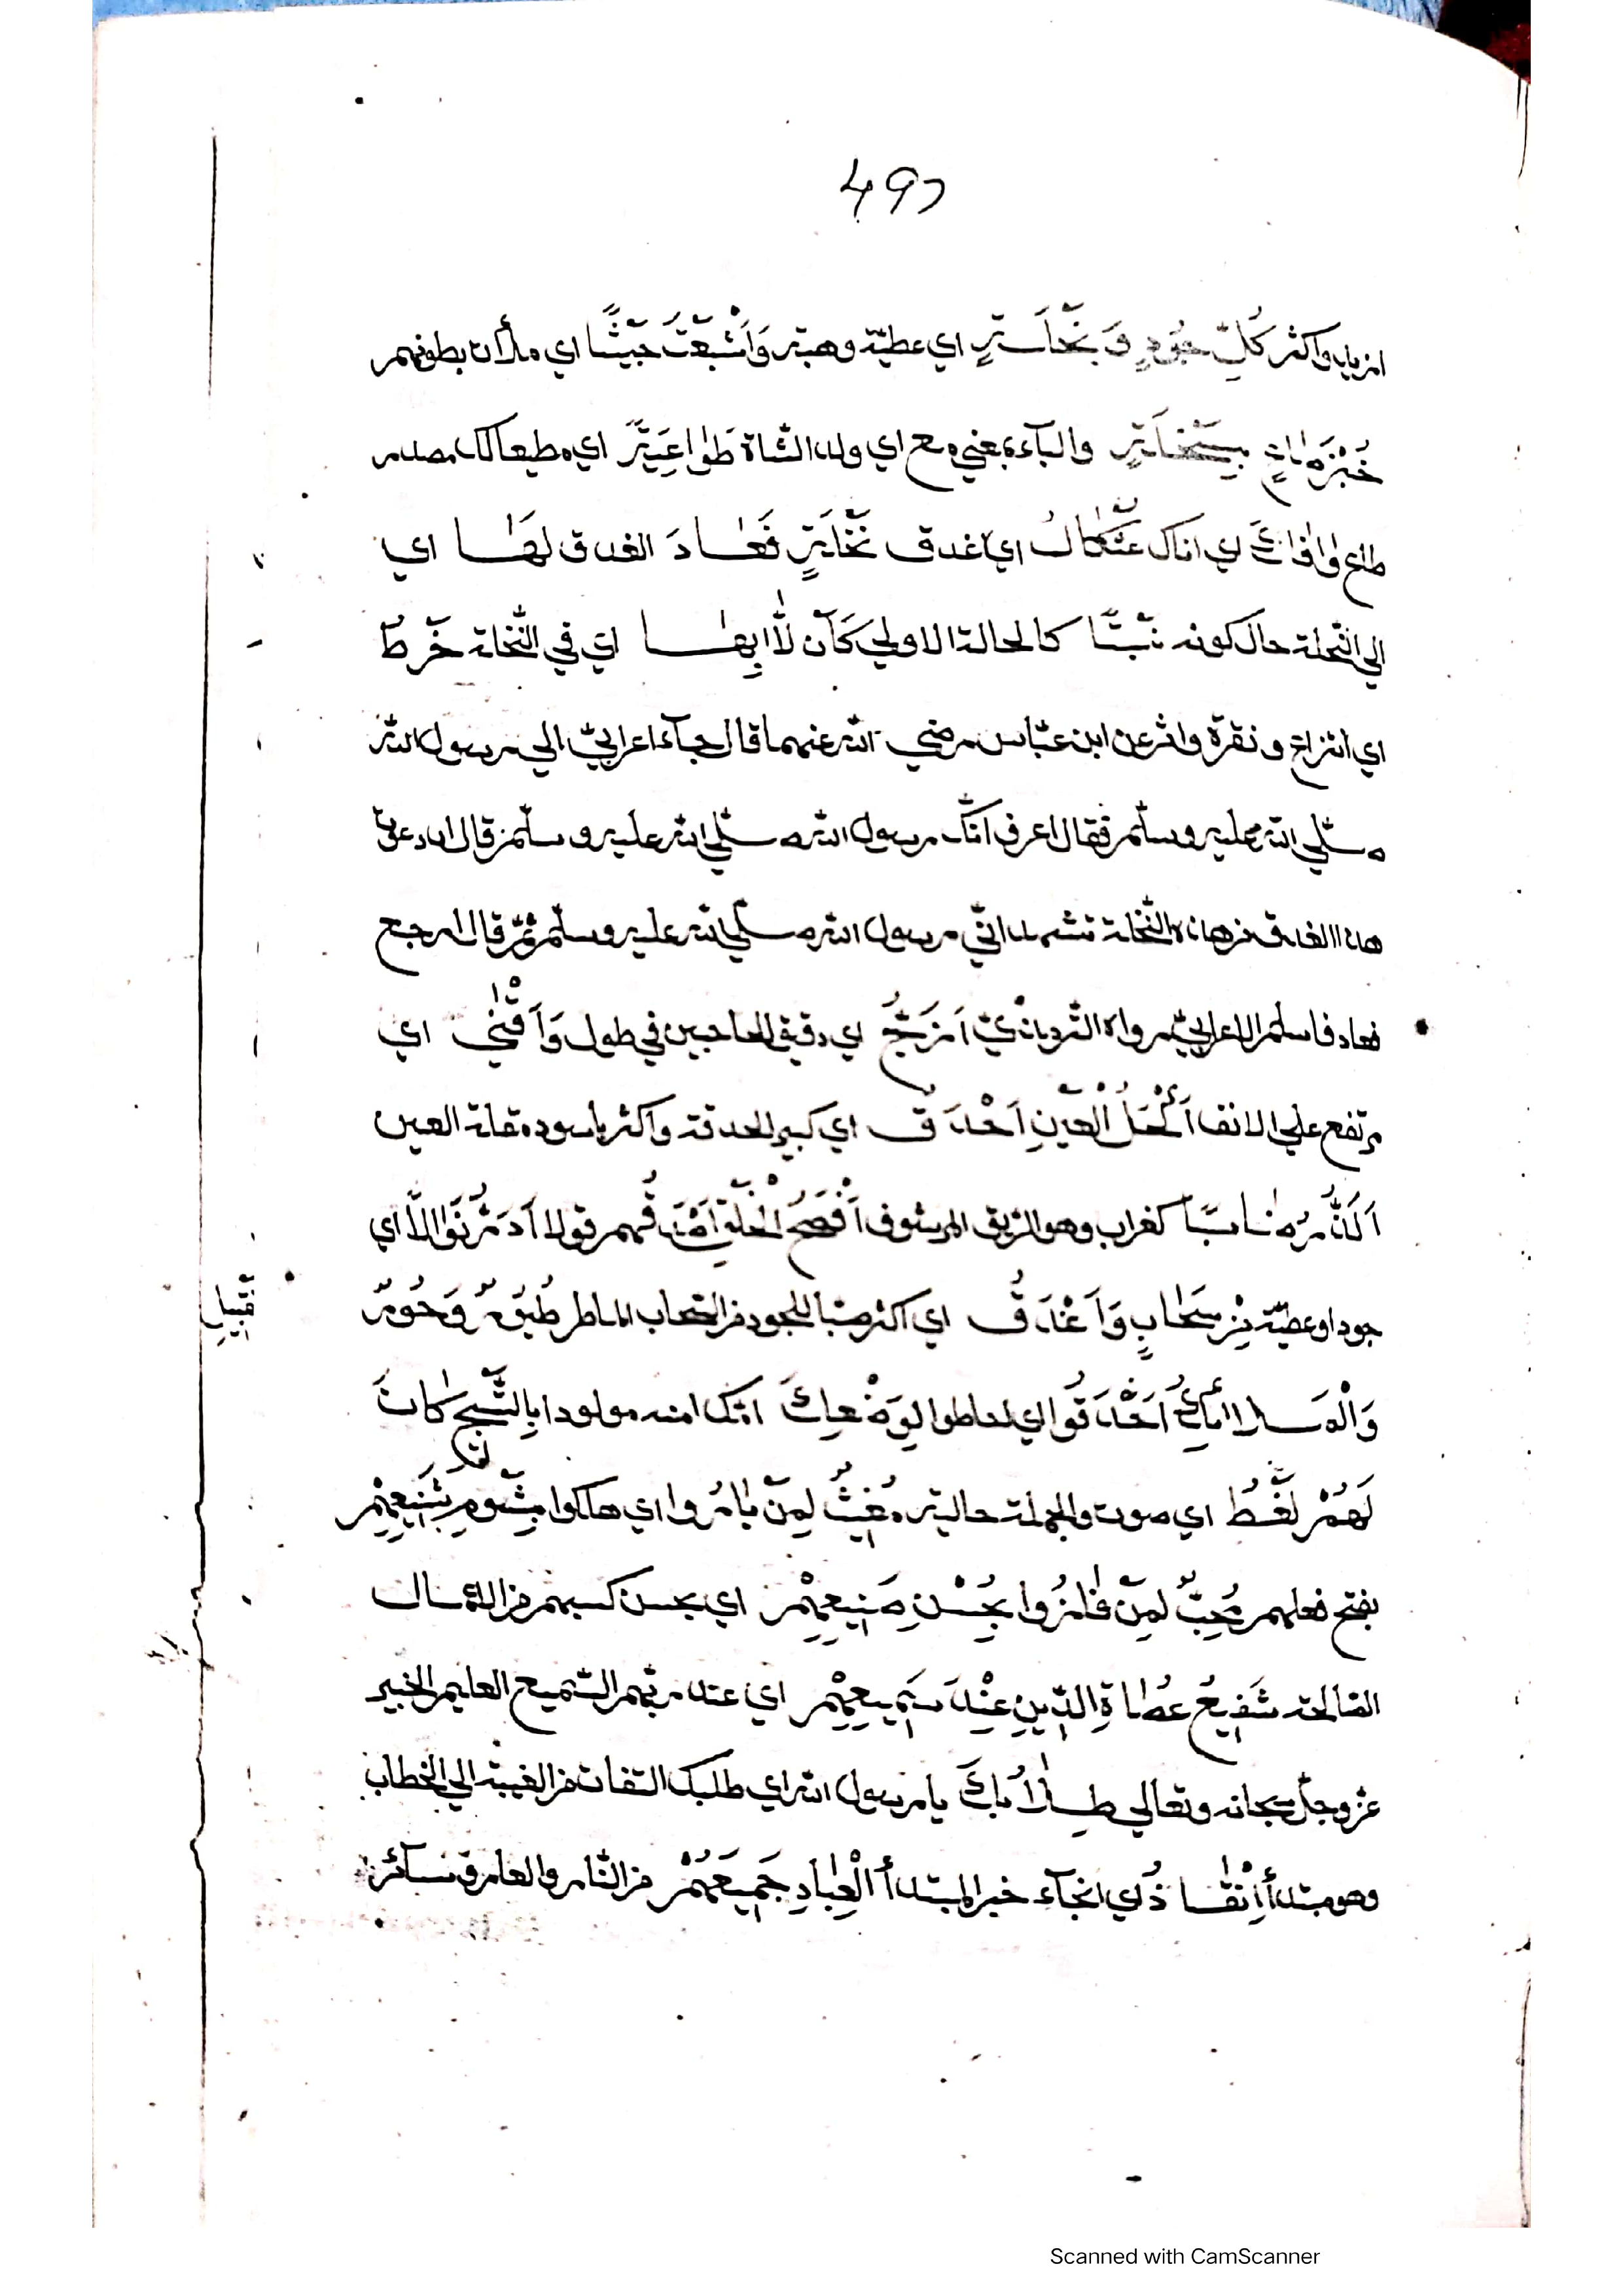 49
ازيد واكثر كُلِّ جُودٍ وَنَخْلَةٍ اي عطيّة وهبة وَاَشْبَعْتَ جَيْشًا اي ملأن بطونهم
بِسَخْلَةٍ والبآء بمعني مع اي ولد الشاة طَوَاعِيَةً اي مطيعا لك مصدر
طاع وَافَاكَ اي اتاك عثكال اي غدق نَخْلَةٍ فَعَادَ الغدق لَهَا اي
الي النّخلة حال كونه نَبْتًا كالحالة الاولي كَآن لَّا بِهَا اي في النّخلة خَرْطٌ
اي انتزاع ونقرة واثر عن ابن عبّاس رضي الله عنهما قال جآء اعرابيّ الي رسول الله
صلّي الله عليه وسلّم فقال اعرف انّك رسول الله صلّي الله عليه وسلّم قال ان دعوت
هذا الغدق من هذه النّخلة تشهد انّي رسول الله صلّي الله عليه وسلّم ثمّ قال ارجع
فعاد فاسلم الاعرابيّ رواه التّرمذيّ اَزَجُّ اي دقيق الحاجبين في طول وَاَقْنٰي اي
مرتفع علي الانف اَكْحَلُ الْعَيْنِ اَحْدَقُ اي كبير الحدقة واكثرها سود مقلة العين
كغراب وهو الرّيق المرشوف اَفْصَحُ الْخَلْقِ اَصْدَقُهم قولا نَوَالًا اي
جود او عطيّة مِنْ سَحَابٍ وَاَغْدَقُ اي اكثر صبّا للجود من السّحاب الماطر طُيُوْرٌ وَحُوْرٌ
وَالْمَلَاائِكُ اَحْدَقُوا اي احاطوا لِوَضْعِكَ امّك امنه مولودا بِالتَّسْبِيحِ كَانَ
لَهُمْ لَغْطُ اي صوت والجملة حالية مُغِيثٌ لِمَنْ بَارُوا اي هلكوا بِشُومِ شَنِيعِهِمْ
بقبح فعلهم مُحِبٌّ لِمَنْ فَازُوا بِحُسْنِ صَنِيعِهِمْ اي بحسن كسبهم من الاعمال
الصّالحة شَفِيعُ عُصَاةِ الدِّينِ عِنْدَ سَمِيعِهِمْ اي عند ربّهم السّميع العليم الخبير
عزّ وجلّ سبحانه وتعالي طِلَابُكَ يا رسول الله اي طلبك التفات من الغيبة الي الخطاب
وهو مبتدأ اِنْقَاذُ اي انجآء خبر المبتدأ الْعِبَادِ جَمِيعَهُمْ من النّار والعار وسائر